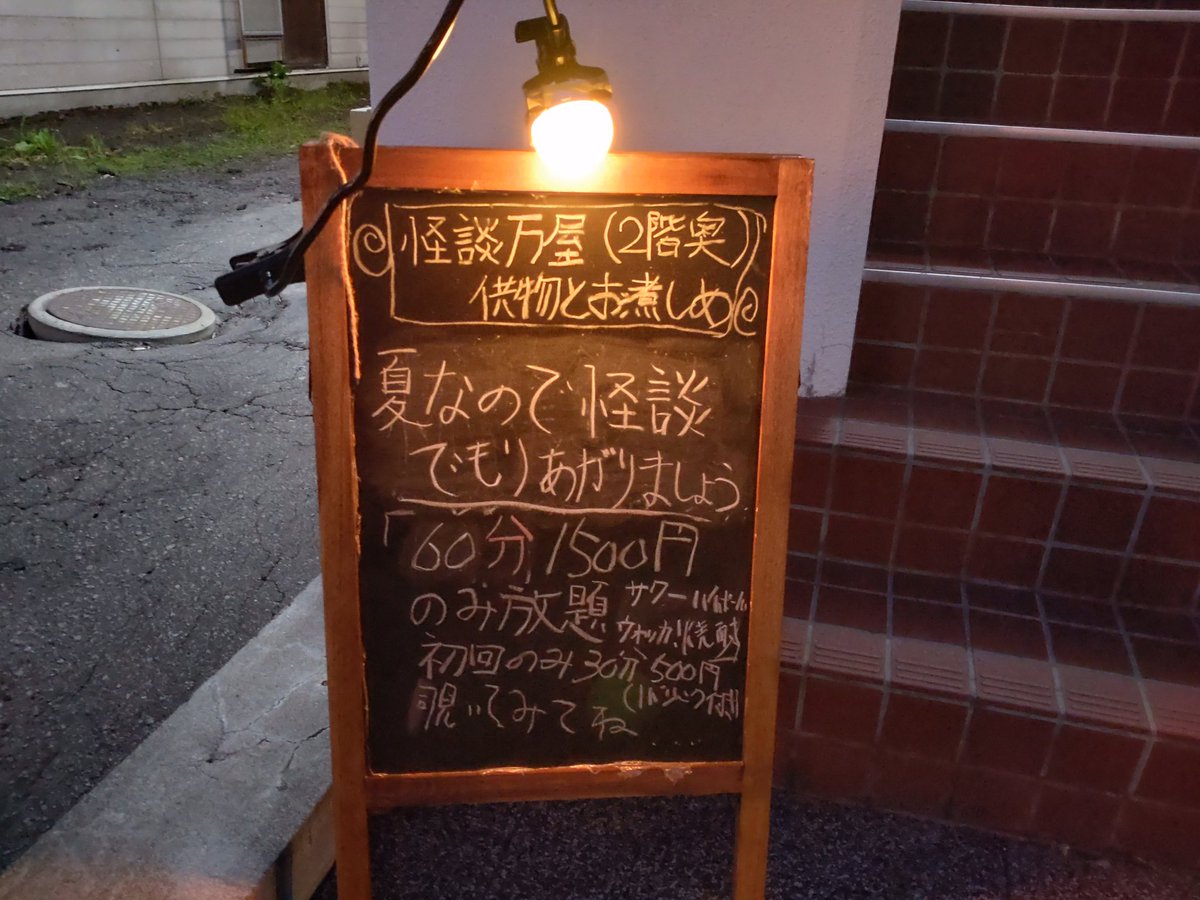 怪談万屋(2階奥)
供物とお煮しめ
夏なので怪談
でもりあがりましょう
「60分1500円
のみ放題 サワーハイボール
ウォッカ焼酎」
初回のみ30分500円
覗いてみてね (1ドリンク付)